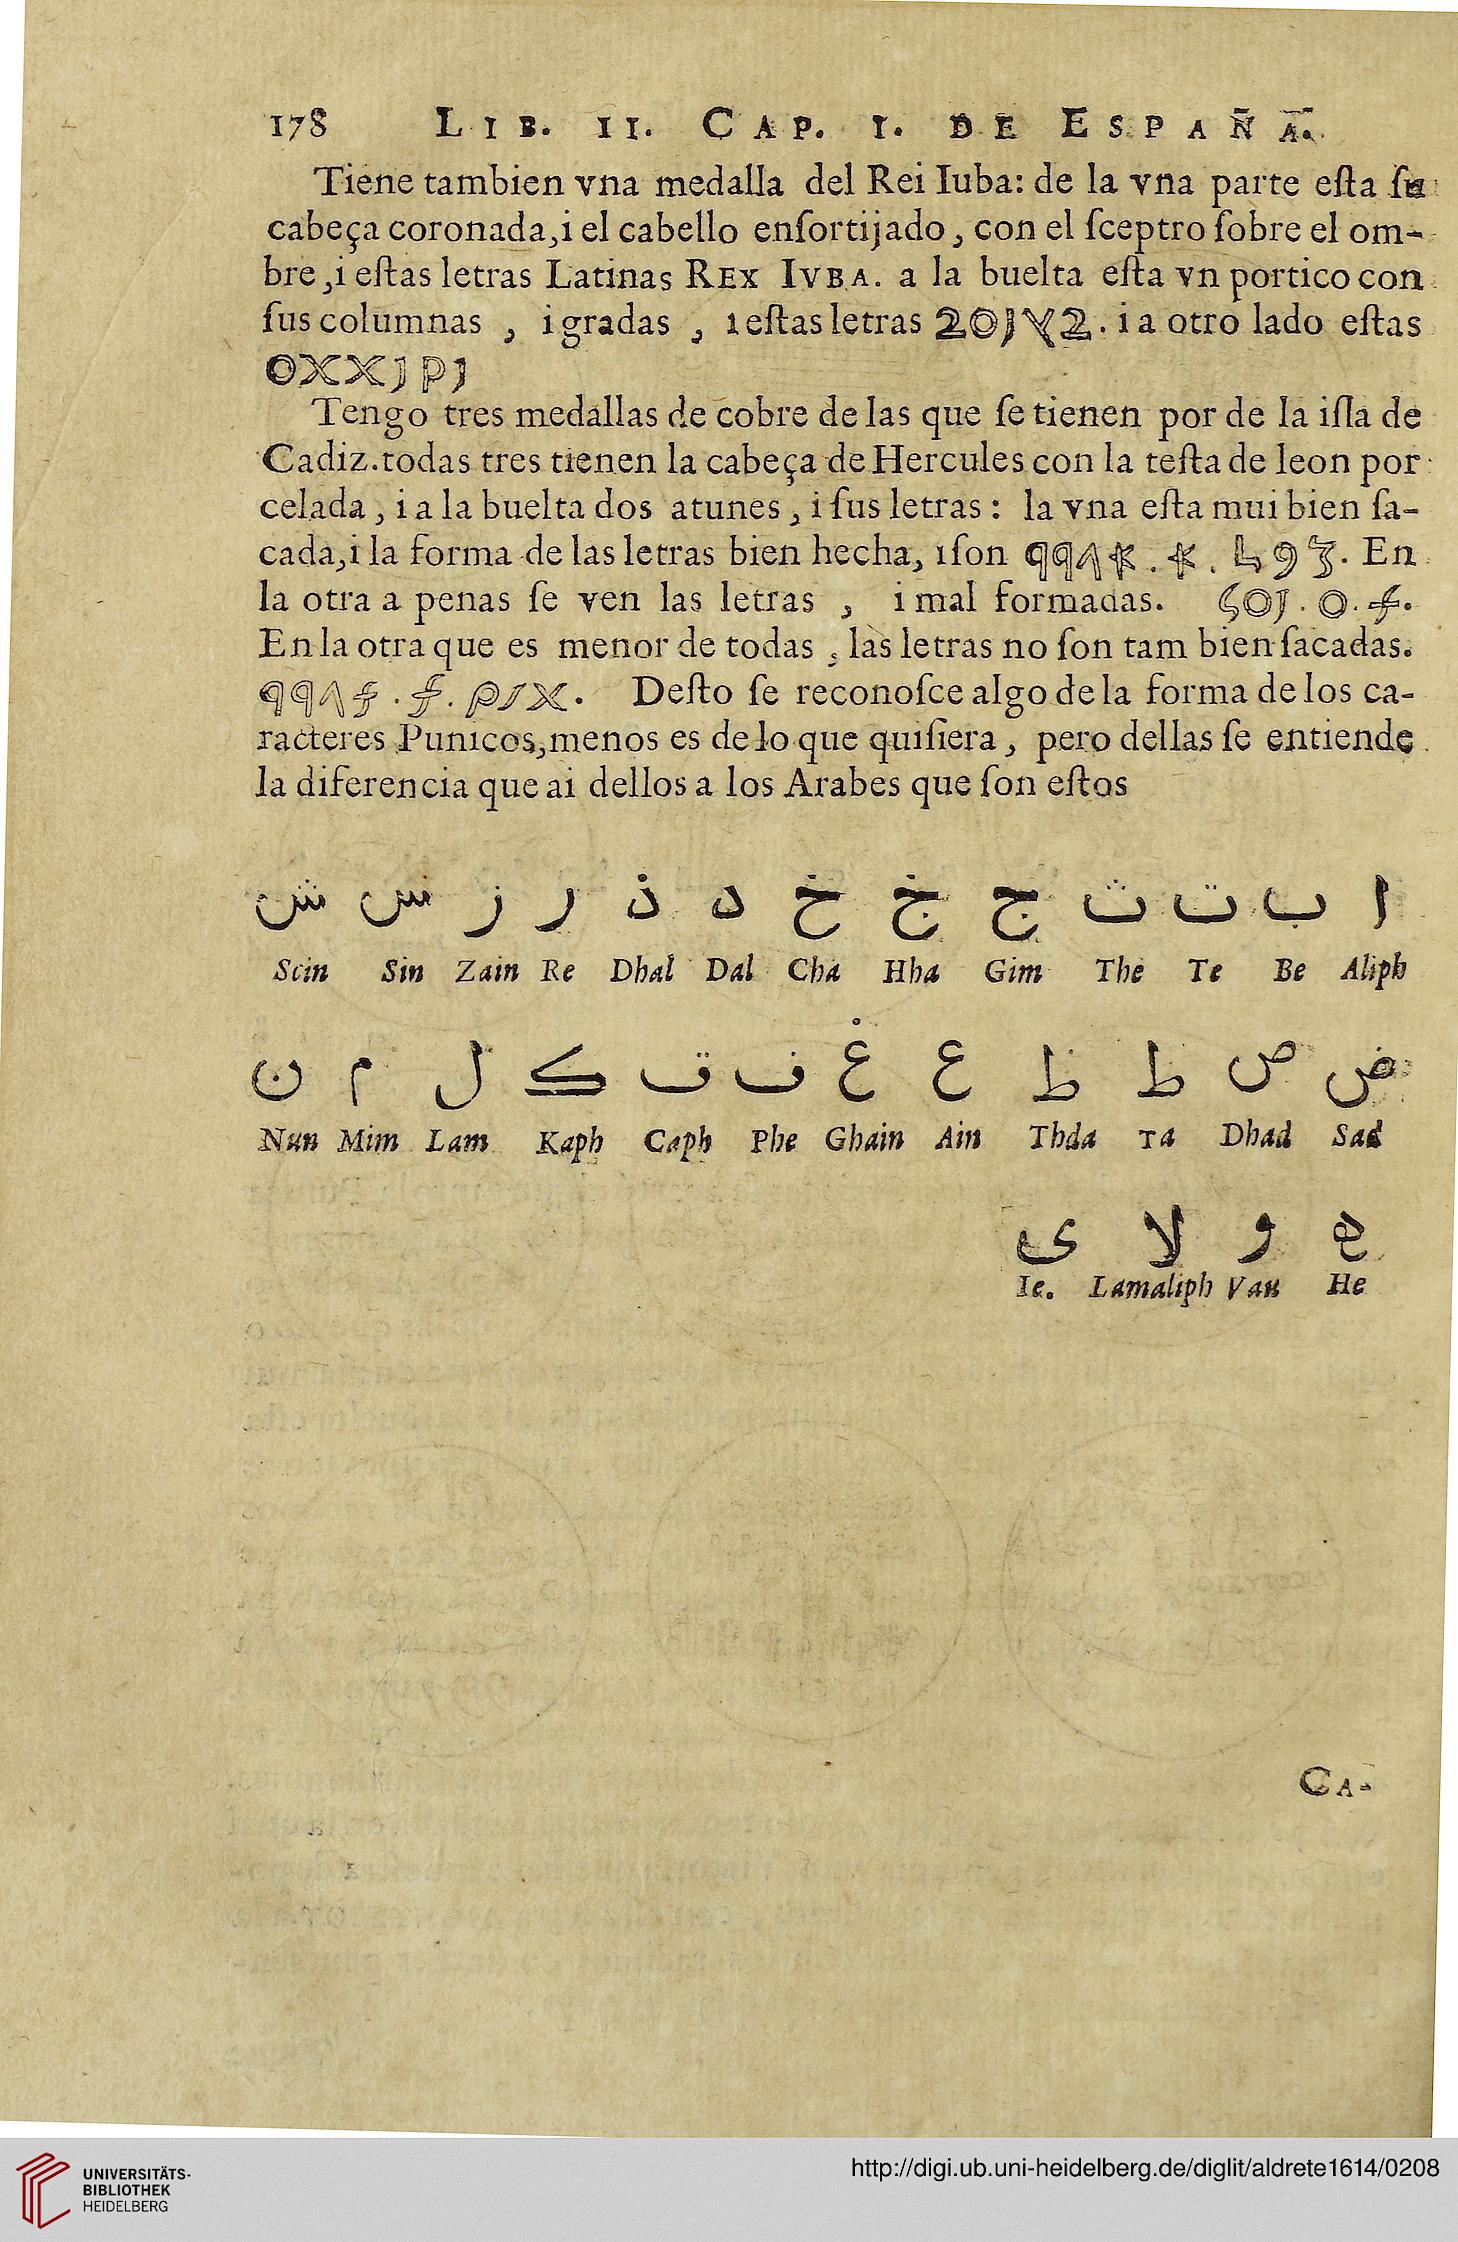 178 LIB. II. CAP. I. DE ESPAÑA.
Tiene tambien vna medalla del Rei Iuba: de la vna parte eſta ſu
cabeça coronada,i el cabello enſortijado, con el ſceptro ſobre el om-
bre,i eſtas letras Latinas REX IVBA. a la buelta eſta vn portico con
ſus columnas , i gradas , i eſtas letras . i a otro lado eſtas
Tengo tres medallas de cobre de las que ſe tienen por de la iſla de
Cadiz.todas tres tienen la cabeça de Hercules con la teſta de leon por
celada, i a la buelta dos atunes, i ſus letras: la vna eſta mui bien ſa-
cada,i la forma de las letras bien hecha, i ſon . En
la otra a penas ſe ven las letras , i mal formadas.
En la otra que es menor de todas , las letras no ſon tam bien ſacadas.
Deſto ſe reconoſce algo de la forma de los ca-
racteres Punicos,menos es de lo que quiſiera, pero dellas ſe entiende
la diferencia que ai dellos a los Arabes que ſon eſtos
ا ب ت ث ج خ خ د ذ ر ز س ش
Scin Sin Zain Re Dhal Dal Cha Hha Gim The Te Be Aliph
ض ص ط ظ ع غ ف ق ك ل م ن
Nun Mim Lam Kaph Caph Phe Ghain Ain Thda Ta Dhad Sad
ه و لا ى
Ie. Lamaliph Vau He
CA-
UNIVERSITÄTS-
BIBLIOTHEK
HEIDELBERG
http://digi.ub.uni-heidelberg.de/diglit/aldrete1614/0208